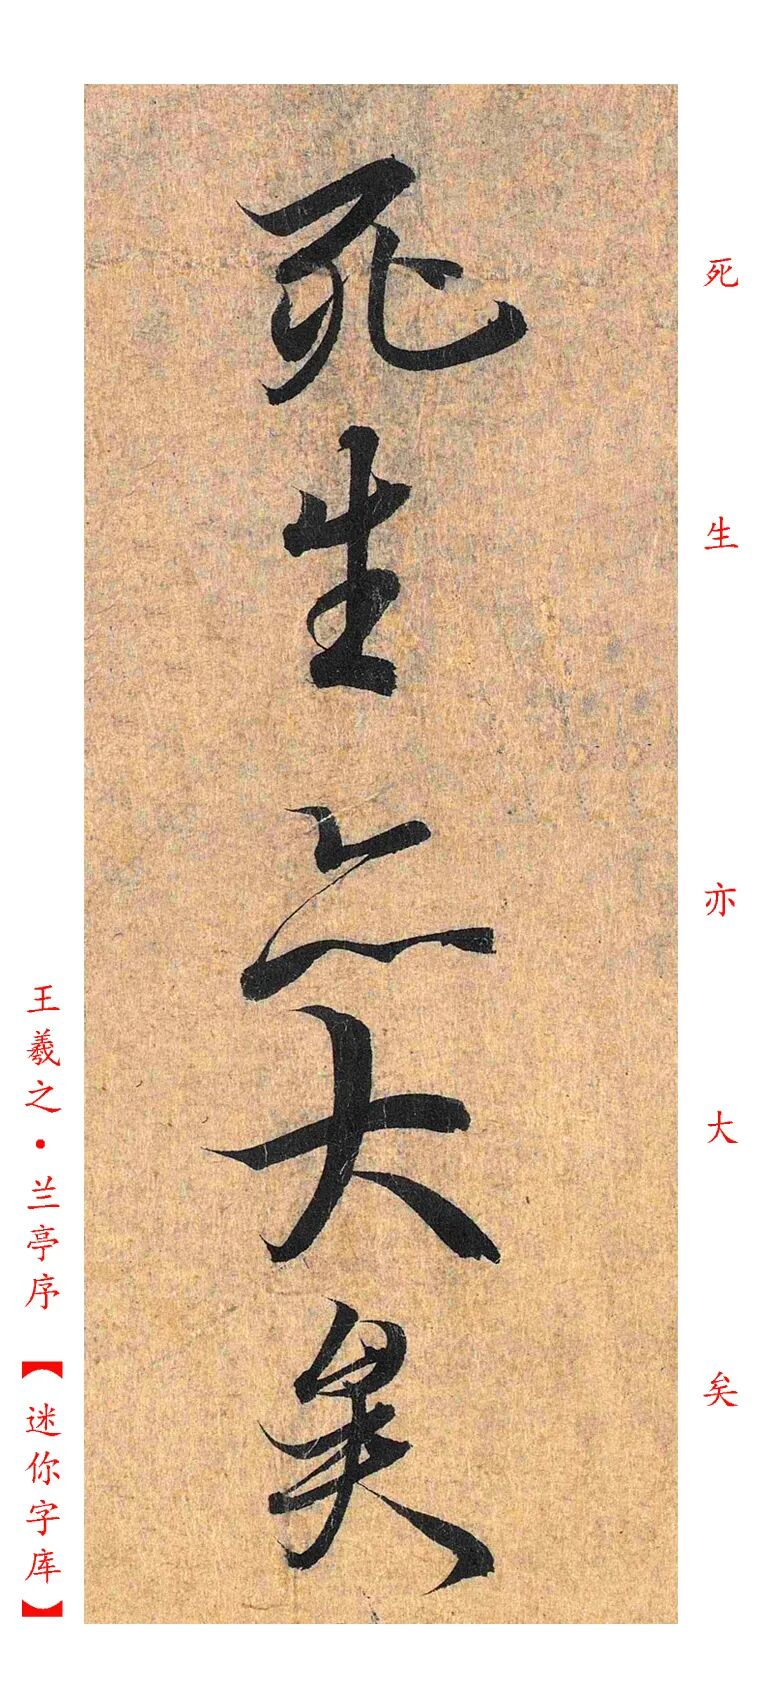 死生亦大矣
死生亦大矣
王羲之·兰亭序【迷你字库】